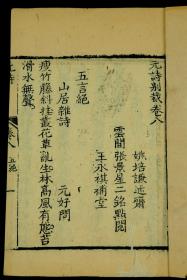 元詩別裁卷八
姚培謙述齋
雲間張景星二銘點閱
王永祺補堂
五言絕
山居雜詩
元好問
瘦竹藤斜挂叢花草亂生林高風有態苔
滑水無聲
卷八
五絕